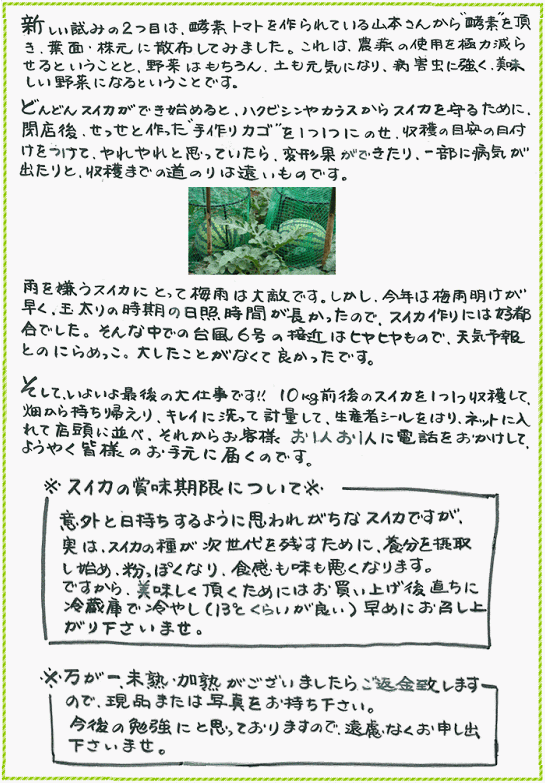 新しい試みの2つ目は、酵素トマトを作られている山本さんから"酵素"を頂
き、葉面・株元に散布してみました。これは、農薬の使用を極力減ら
せるということと、野菜はもちろん、土も元気になり、病害虫に強く、美味
しい野菜になるということです。
どんどんスイカができ始めると、ハクビシンやカラスからスイカを守るために、
閉店後、せっせと作った"手作りカゴ"を1つ1つにのせ、収穫の目安の日付
けをつけて、やれやれと思っていたら、変形果ができたり、一部に病気が
出たりと、収穫までの道のりは遠いものです。
雨を嫌うスイカにとって梅雨は大敵です。しかし、今年は梅雨明けが
早く、玉太りの時期の日照時間が長かったので、スイカ作りには好都
合でした。そんな中での台風6号の接近はヒヤヒヤもので、天気予報
とのにらめっこ。大したことがなくて良かったです。
そして、いよいよ最後の大仕事です!! 10kg前後のスイカを1つ1つ収穫して、
畑から持ち帰えり、キレイに洗って計量して、生産者シールをはり、ネットに入
れて店頭に並べ、それからお客様お1人お1人に電話をおかけして、
ようやく皆様のお手元に届くのです。
※スイカの賞味期限について※
意外と日持ちするように思われがちなスイカですが、
実は、スイカの種が次世代を残すために、養分を摂取
し始め、粉っぽくなり、食感も味も悪くなります。
ですから、美味しく頂くためにはお買い上げ後直ちに
冷蔵庫で冷やし(13℃くらいが良い)早めにお召し上
がり下さいませ。
※万が一、未熟・加熟がございましたらご返金致します
ので、現品または写真をお持ち下さい。
今後の勉強にと思っておりますので、遠慮なくお申し出
下さいませ。